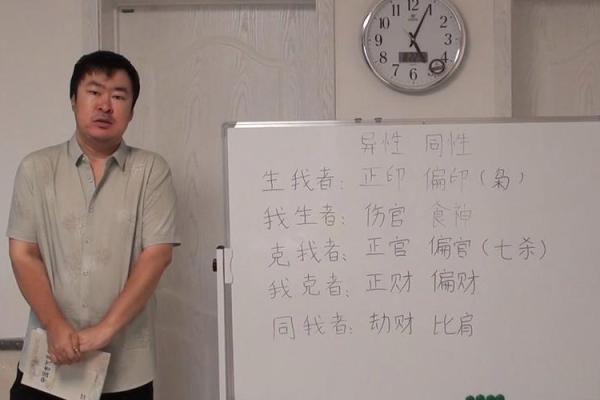 异性 同性
生我者：正印 偏印（枭）
我生者：伤官 食神
克我者：正官 偏官（七杀）
我克者：正财 偏财
同我者：劫财 比肩
12
11
1
10
2
9
3
8
4
7
5
6